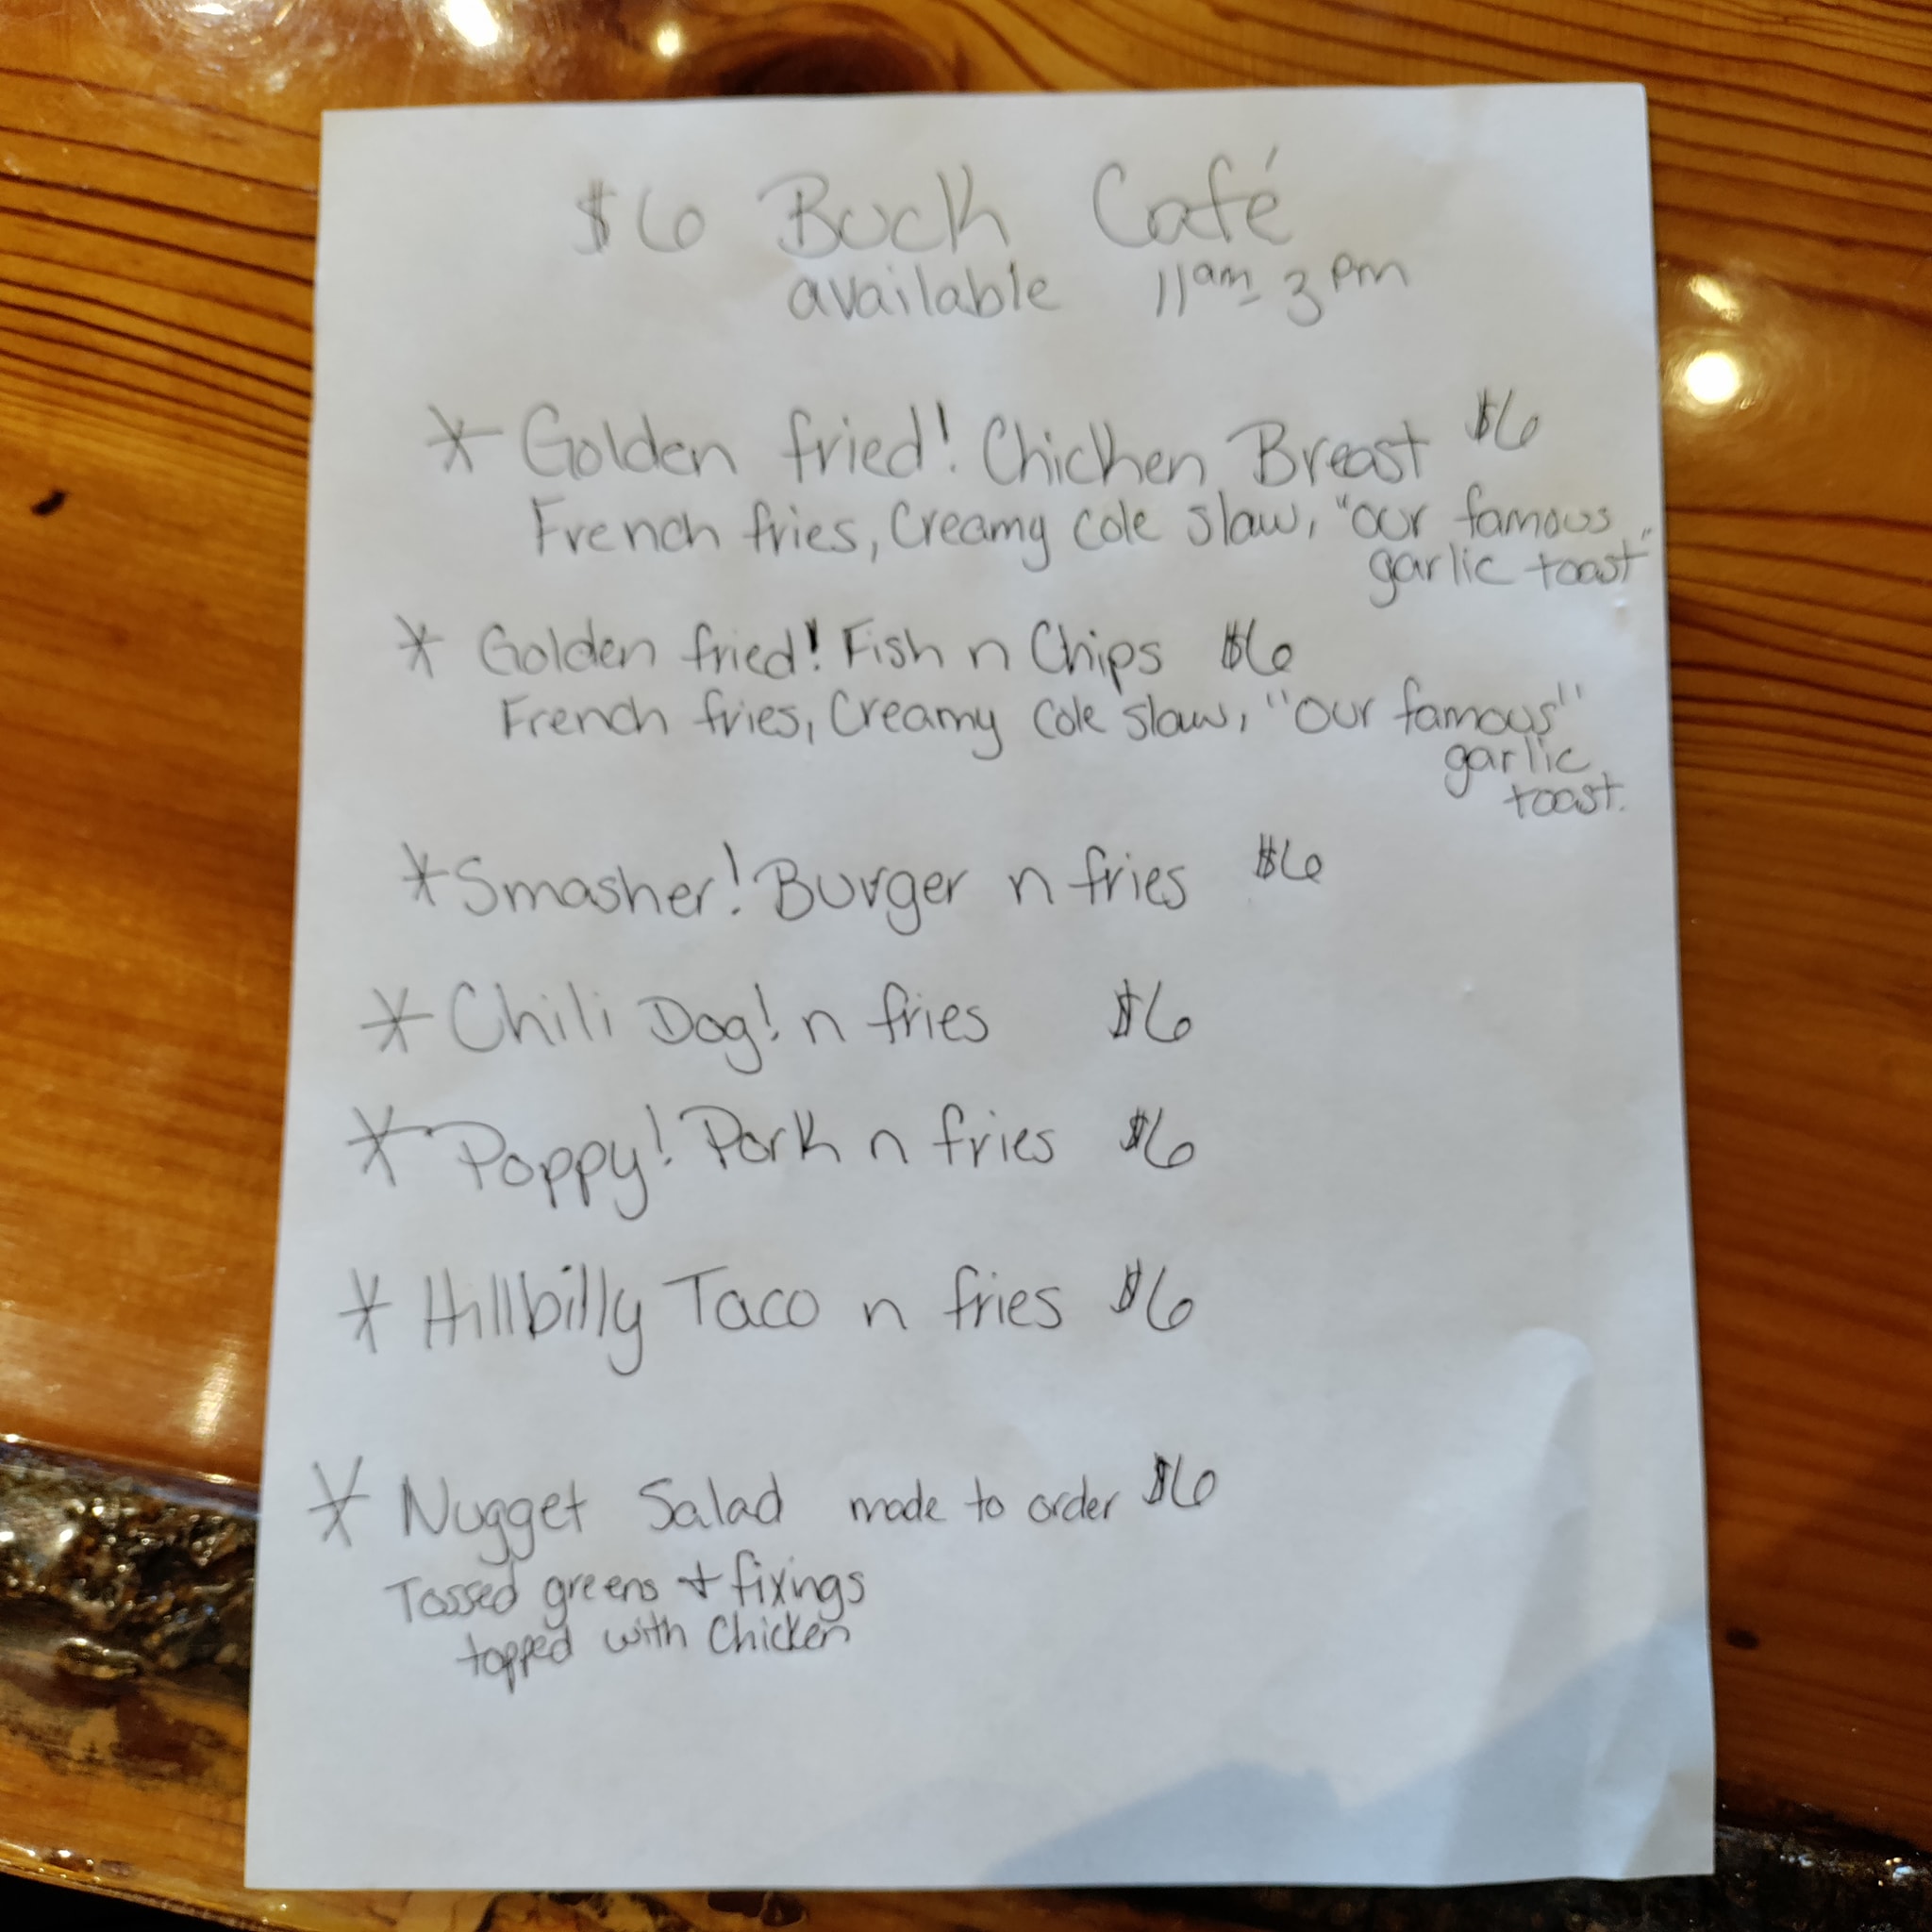 $6 Buck Café
available 11am - 3pm
* Golden fried! Chicken Breast $6
French fries, Creamy cole slaw, "our famous
garlic toast"
* Golden fried! Fish n Chips $6
French fries, Creamy cole slaw, "our famous"
garlic
toast.
* Smasher! Burger n fries $6
* Chili Dog! n fries $6
* Poppy! Pork n fries $6
* Hillbilly Taco n fries $6
* Nugget Salad made to order $6
Tossed greens + fixings
topped with Chicken